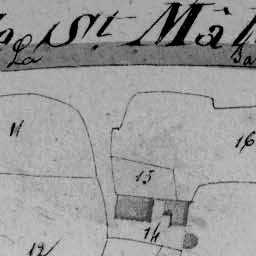 St Mà
La
11
16
15
14
12